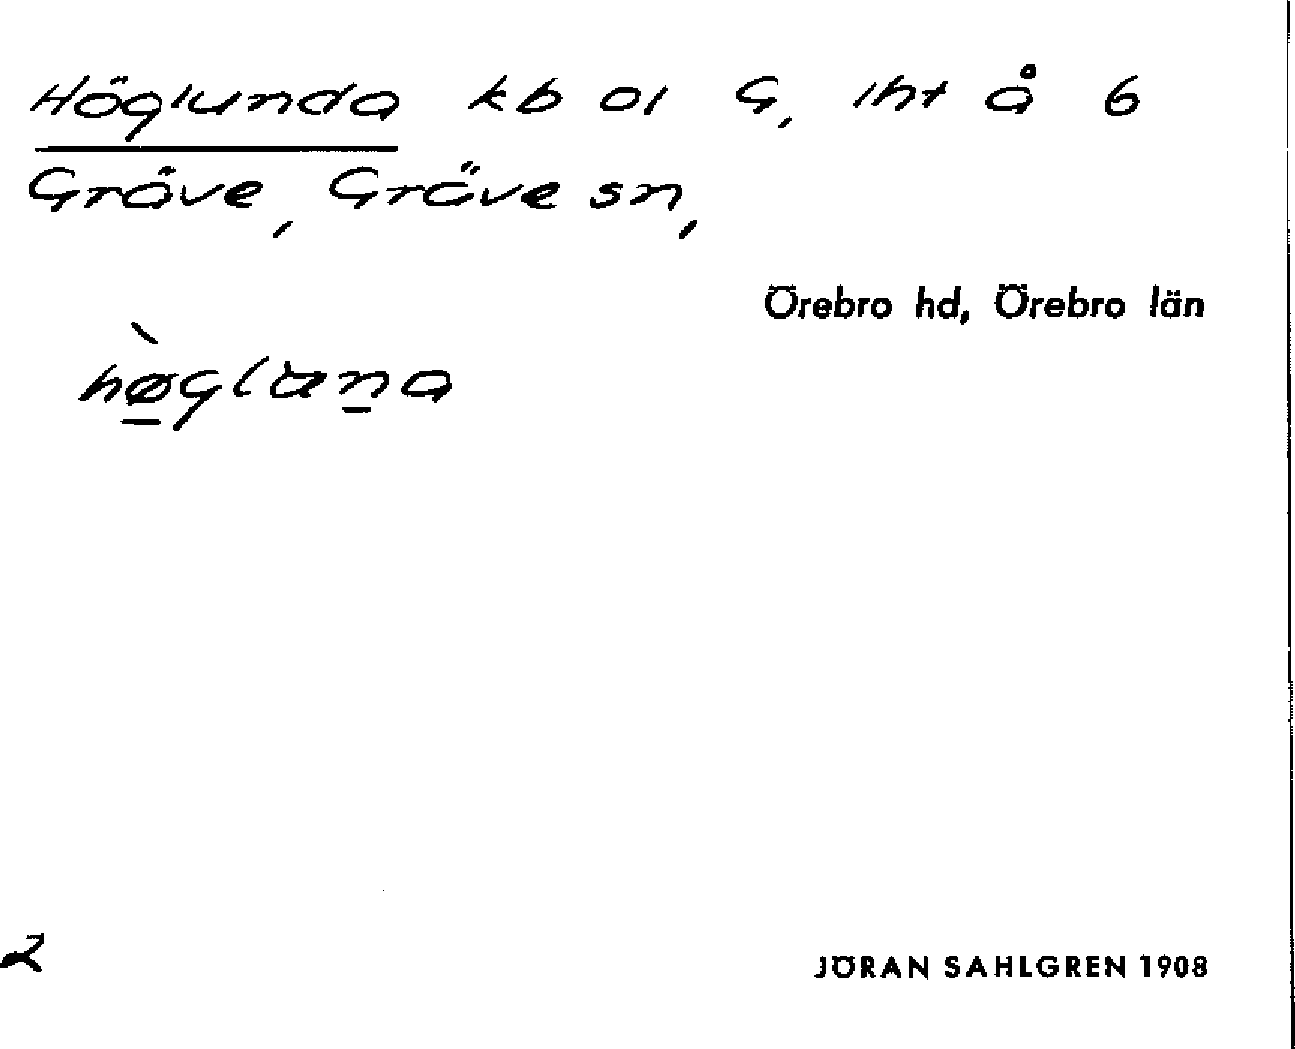 Höglunda kb ol G, lht å 6
Gräve, Gräve sn,
Örebro hd, Örebro län
hø̀glùna
2
JÖRAN SAHLGREN 1908